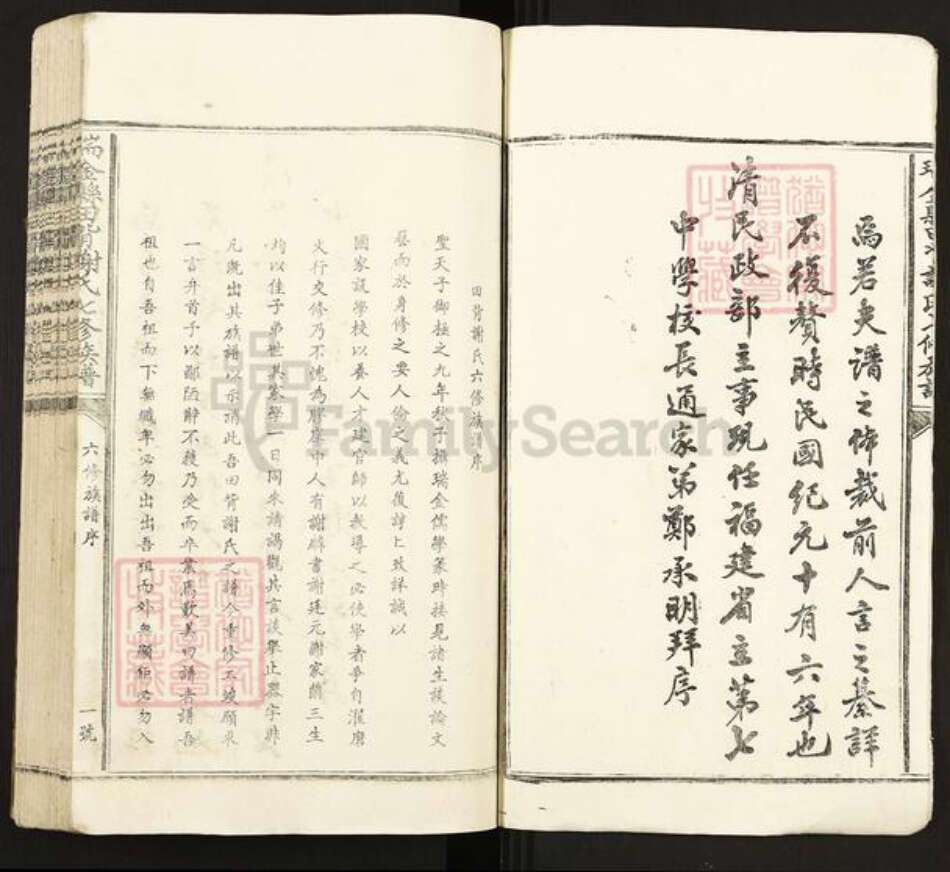 為若夫譜之佈裁前人言之綦詳
不復贅時民國紀元十有六年也
清民政部主事現任福建省立第七
中學校長通家弟鄭承明拜序
田背謝氏六修族譜序
聖天子御極之九年秋予攝瑞金儒學篆時接見諸生談論文
藝而於身修之要人倫之義尤復諄諄致詳誠以
國家設學校以養人才建官師以教導之必使學者爭自濯磨
文行交修乃不愧為膠庠中人有謝辟書謝廷元謝家蘭三生
均以佳子弟世其家學一日同來請謁觀其言談舉止器宇非
凡旋出其族譜以示謂此吾田背謝氏之譜今重修工竣願求
一言弁首予以鄙陋辭不獲乃受而卒業焉歎美曰譜者譜吾
祖也自吾祖而下無纖卑必勿出出吾祖而外無顯鉅必勿入
瑞金縣田背謝氏七修族譜
六修族譜序
一號
FamilySearch